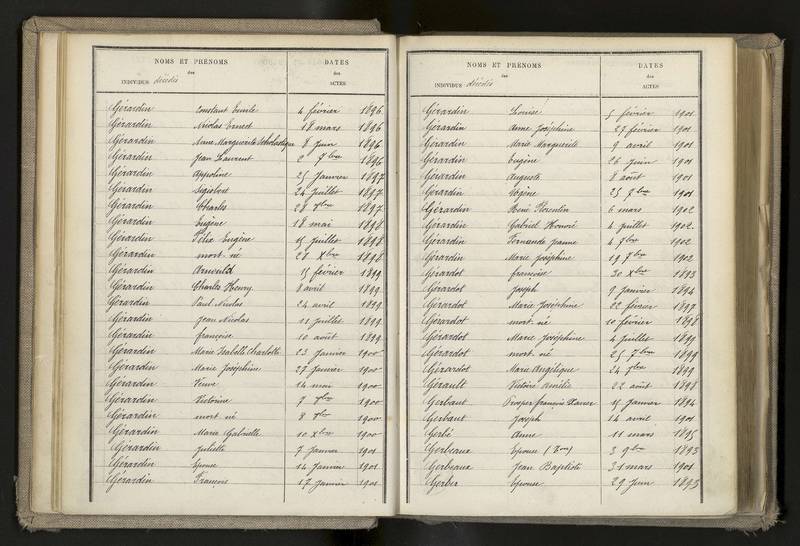 NOMS ET PRÉNOMS
des
INDIVIDUS décédés
DATES
des
ACTES
Gérardin Constant Emile 4 février 1896
Gérardin Nicolas Ernest 18 mars 1896
Gérardin Anne Marguerite Scholastique 8 Juin 1896
Gérardin Jean Laurent 7bre 1896
Gérardin Appoline 25 Janvier 1897
Gérardin Segisbert 24 Juillet 1897
Gérardin Charles 28 1897
Gérardin Eugène 18 mai 1898
Gérardin Félix Eugène 15 Juillet 1898
Gérardin mort-né 21 Xbre 1898
Gérardin Arnould 15 février 1899
Gérardin Charles Henry 8 avril 1899
Gérardin Paul Nicolas 24 avril 1899
Gérardin Jean Nicolas 21 Juillet 1899
Gérardin françoise 10 août 1899
Gérardin Marie Isabelle Charlotte 23 Janvier 1900
Gérardin Marie Joséphine 27 Janvier 1900
Gérardin Veuve 14 mai 1900
Gérardin Victorine 7 1900
Gérardin mort né 8 1900
Gérardin Marie Gabrielle 10 Xbre 1900
Gérardin Juliette 7 Janvier 1901
Gérardin Epouse 14 Janvier 1901
Gérardin François 17 Janvier 1901
NOMS ET PRÉNOMS
des
INDIVIDUS décédés
DATES
des
ACTES
Gérardin Louise 5 février 1901
Gérardin Anne Joséphine 27 février 1901
Gérardin Marie Marguerite 9 avril 1901
Gérardin Eugène 26 Juin 1901
Gérardin Auguste 8 août 1901
Gérardin Eugène 25 9bre 1901
Gérardin René Florentin 6 mars 1902
Gérardin Gabriel Honoré 4 Juillet 1902
Gérardin Fernande Jeanne 4 7bre 1902
Gérardin Marie Joséphine 19 7bre 1902
Gérardot françoise 30 Xbre 1893
Gérardot Joseph 9 Janvier 1894
Gérardot Marie Joséphine 22 février 1897
Gérardot mort-né 10 février 1898
Gérardot Marie Joséphine 4 Juillet 1899
Gérardot mort-né 25 7bre 1899
Gérardot Marie Angélique 24 9bre 1899
Gérault Victoire Amélie 22 août 1898
Gerbaut Prosper françois Xavier 15 Janvier 1894
Gerbaut Joseph 14 avril 1901
Gerbé Anne 11 mars 1895
Gerbeaux Epouse 3 9bre 1893
Gerbeaux Jean Baptiste 31 mars 1901
Gerber Epouse 29 Juin 1893